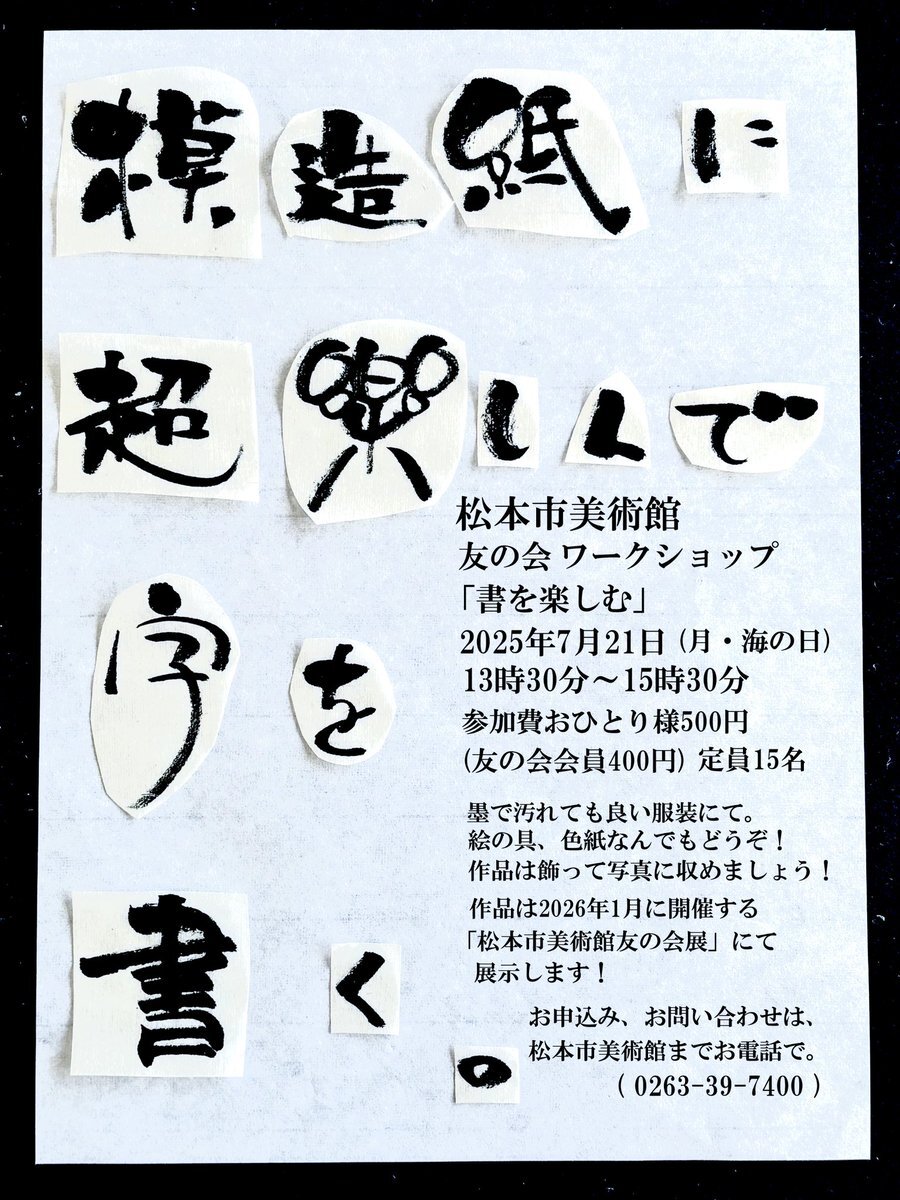 模造紙に
超楽しんで
字を
書く
の
松本市美術館
友の会 ワークショップ
「書を楽しむ」
2025年7月21日 (月・海の日)
13時30分～15時30分
参加費おひとり様500円
(友の会会員400円) 定員15名
墨で汚れても良い服装にて。
絵の具、色紙なんでもどうぞ！
作品は飾って写真に収めましょう！
作品は2026年1月に開催する
「松本市美術館友の会展」にて
展示します！
お申込み、お問い合わせは、
松本市美術館までお電話で。
( 0263-39-7400 )